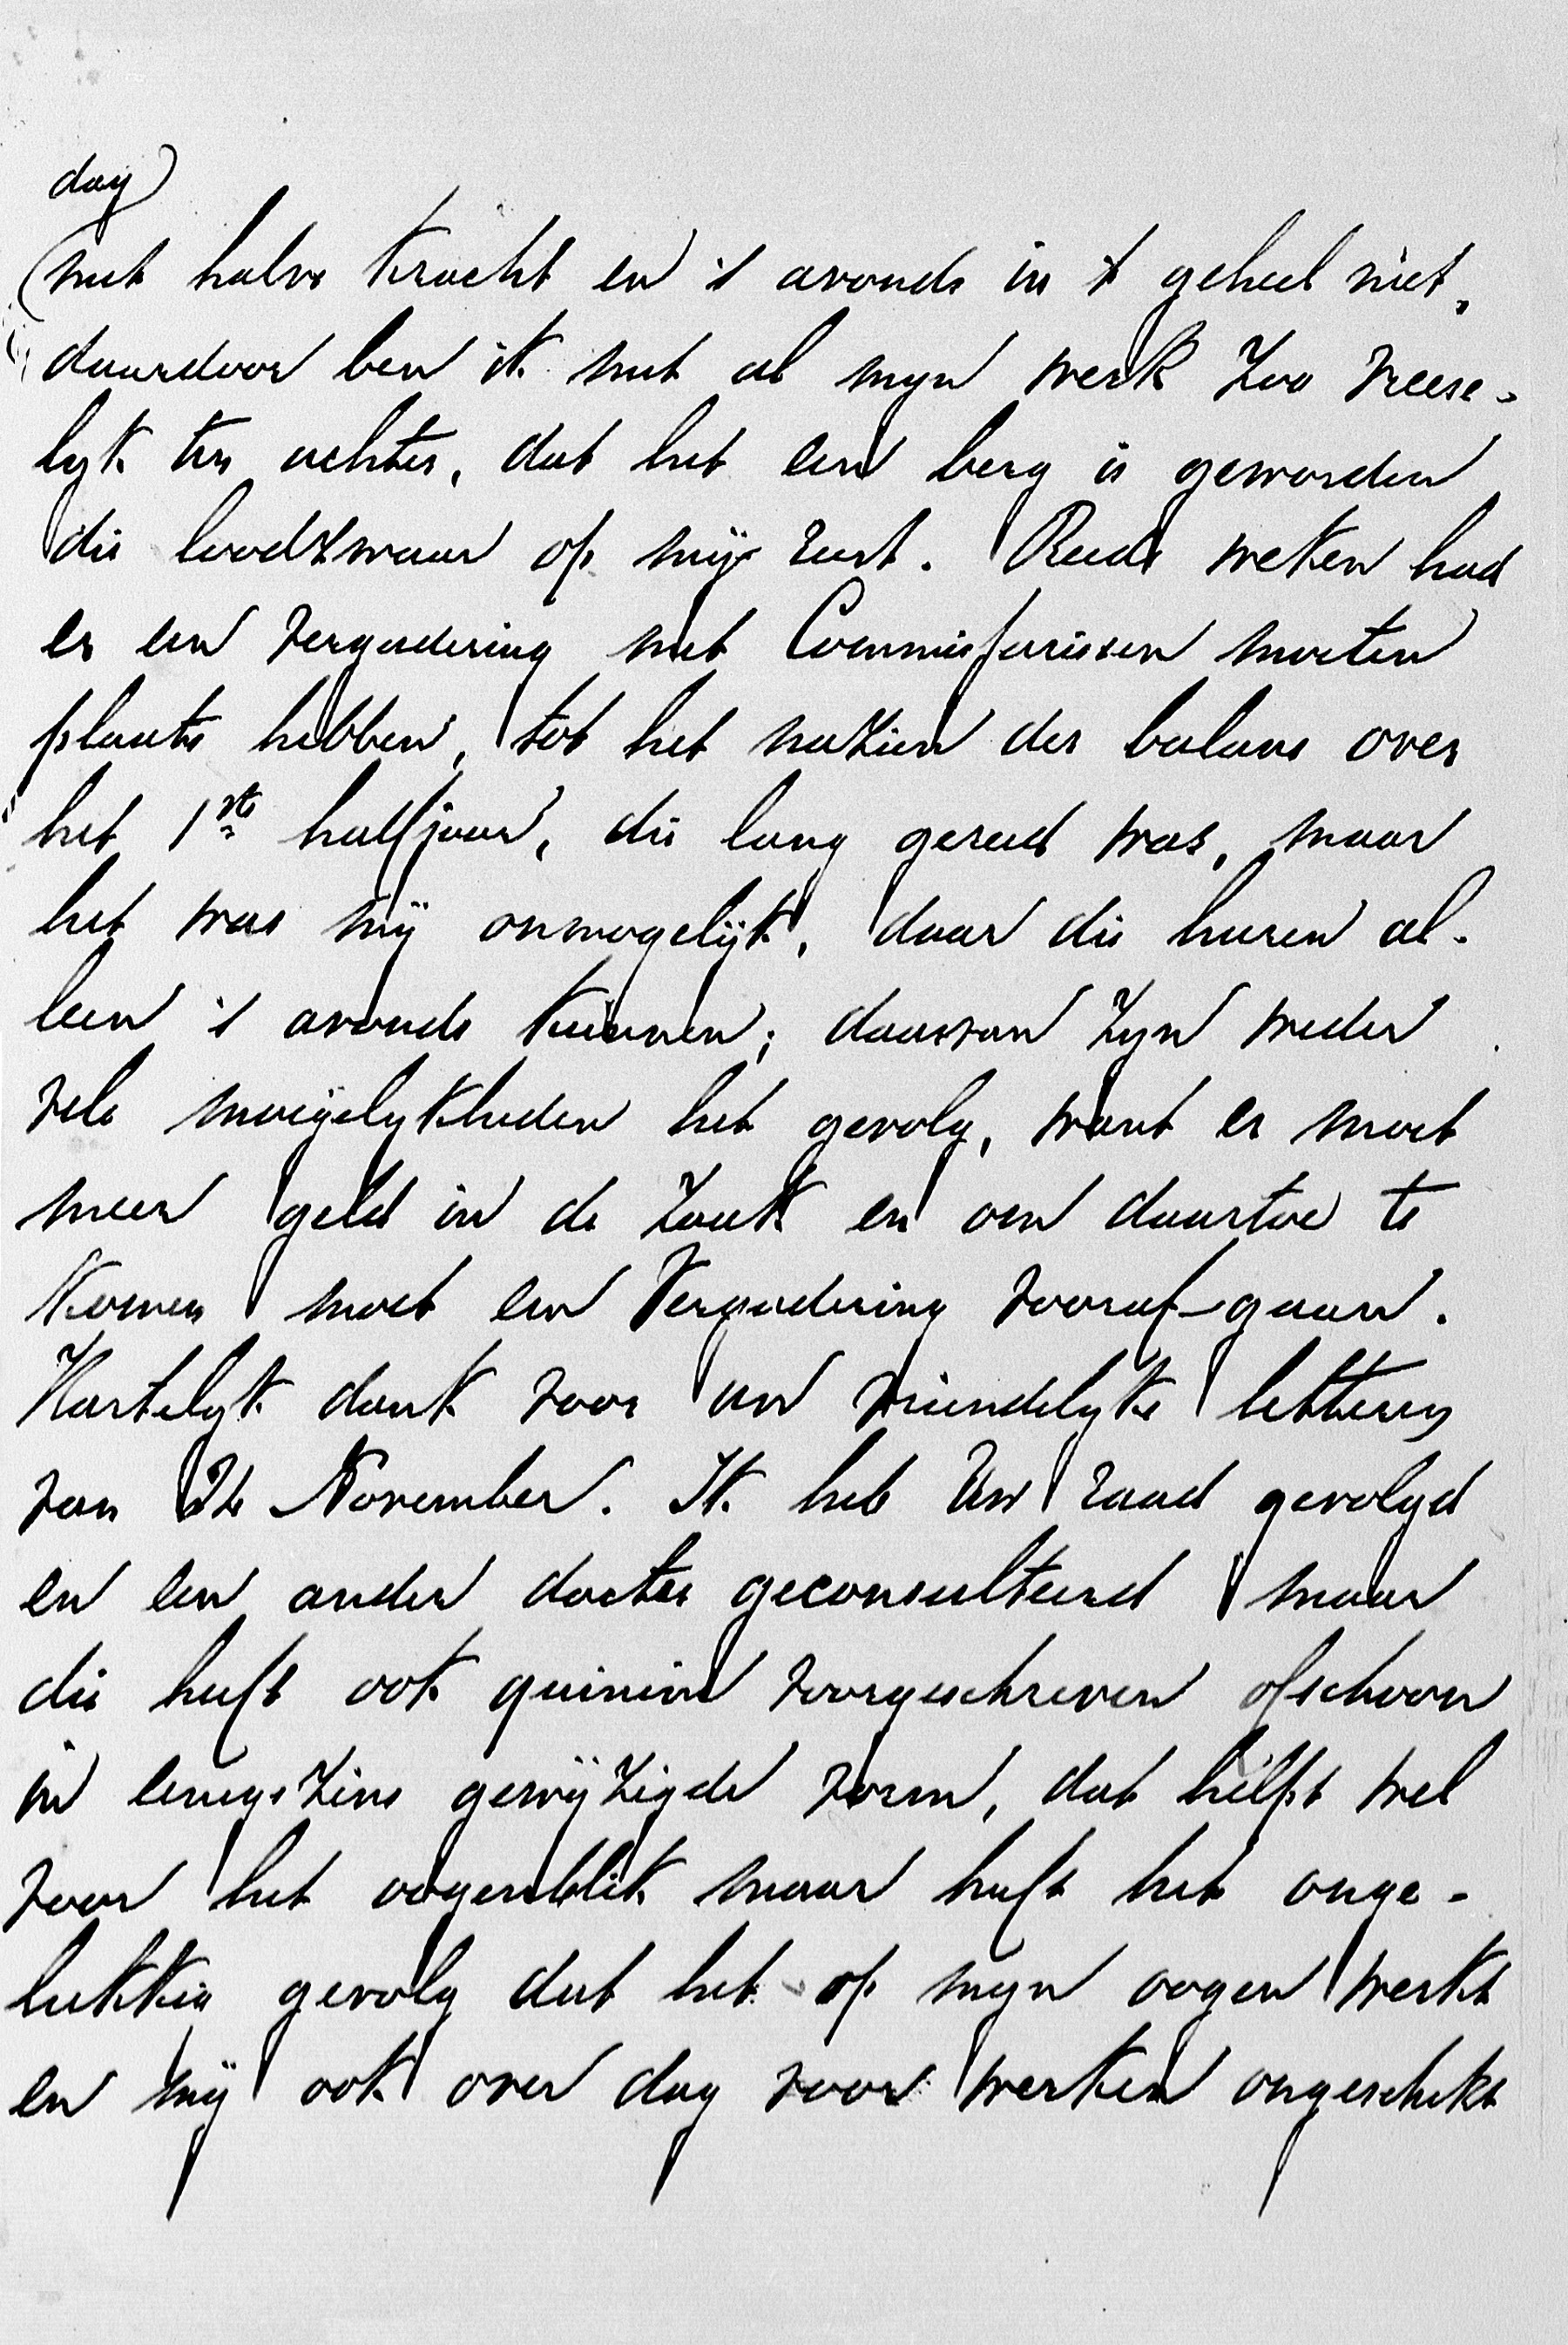 dag
met halve kracht en 's avonds in 't geheel niet,
daardoor ben ik met al myn werk zoo vreese-
lyk ten achter, dat het een berg is geworden
die loodzwaar op mij rust. Reeds weken had
er een vergadering met Commissarissen moeten
plaats hebben, tot het nazien der balans over
het 1ste halfjaar, die lang gereed was, maar
het was mij onmogelijk, daar die heeren al-
leen 's avonds kunnen; daarvan zyn weder
vele moeijelykheden het gevolg, want er moet
meer geld in de zaak en om daartoe te
komen moet een Vergadering vooraf-gaan.
Hartelyk dank voor uw vriendelyke letteren
van November. Ik heb Uw raad gevolgd
en een ander docter geconsulteerd maar
die heeft ook quinine voorgeschreven ofschoon
in eenigszins gewijzigde vorm, dat helpt wel
voor het oogenblik maar heeft het onge-
lukkig gevolg dat het op myn oogen werkt
en mij ook over dag voor werken ongeschikt